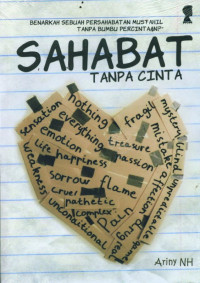 BENARKAH SEBUAH PERSAHABATAN MUSTAHIL
TANPA BUMBU PERCINTAAN?
SAHABAT
TANPA CINTA
nothing
sensation
everything
fragile
mystery
emotion
treasure
blind
life happiness
passion
weakness
sorrow
flame
cruel
pathetic
complex
unconditional
pain
affection
drug
Ariny NH